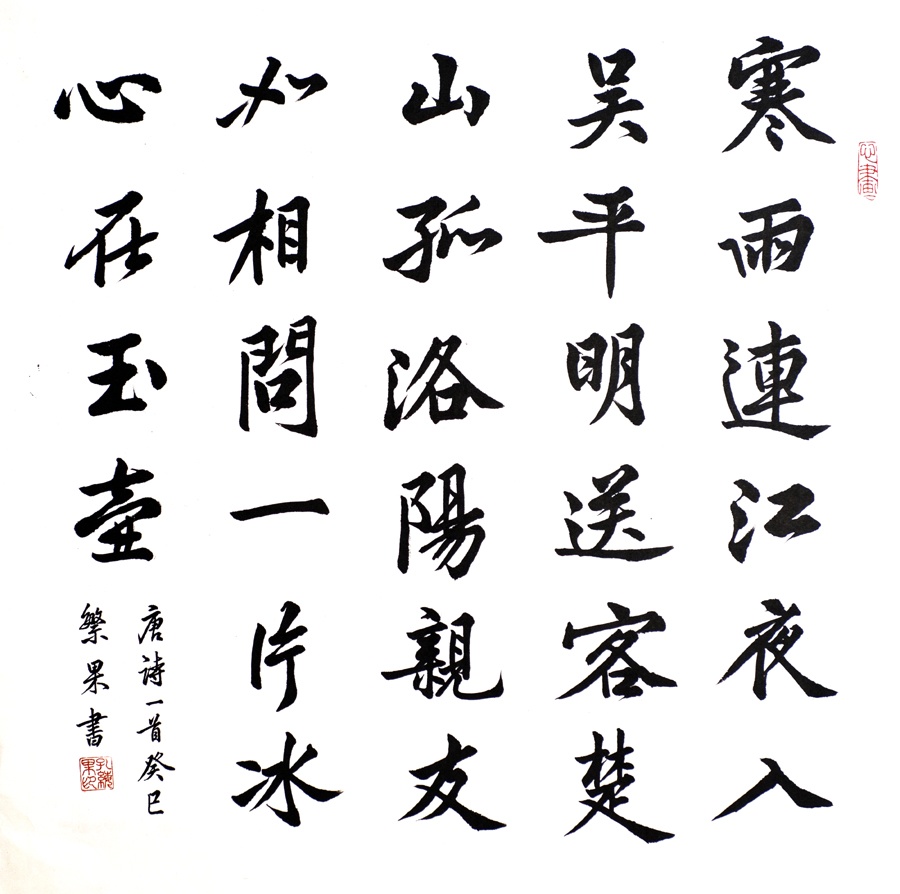 寒雨連江夜入
吴平明送客楚
山孤洛陽親友
如相問一片冰
心在玉壺
唐詩一首癸巳
繁果書
孔繁果印